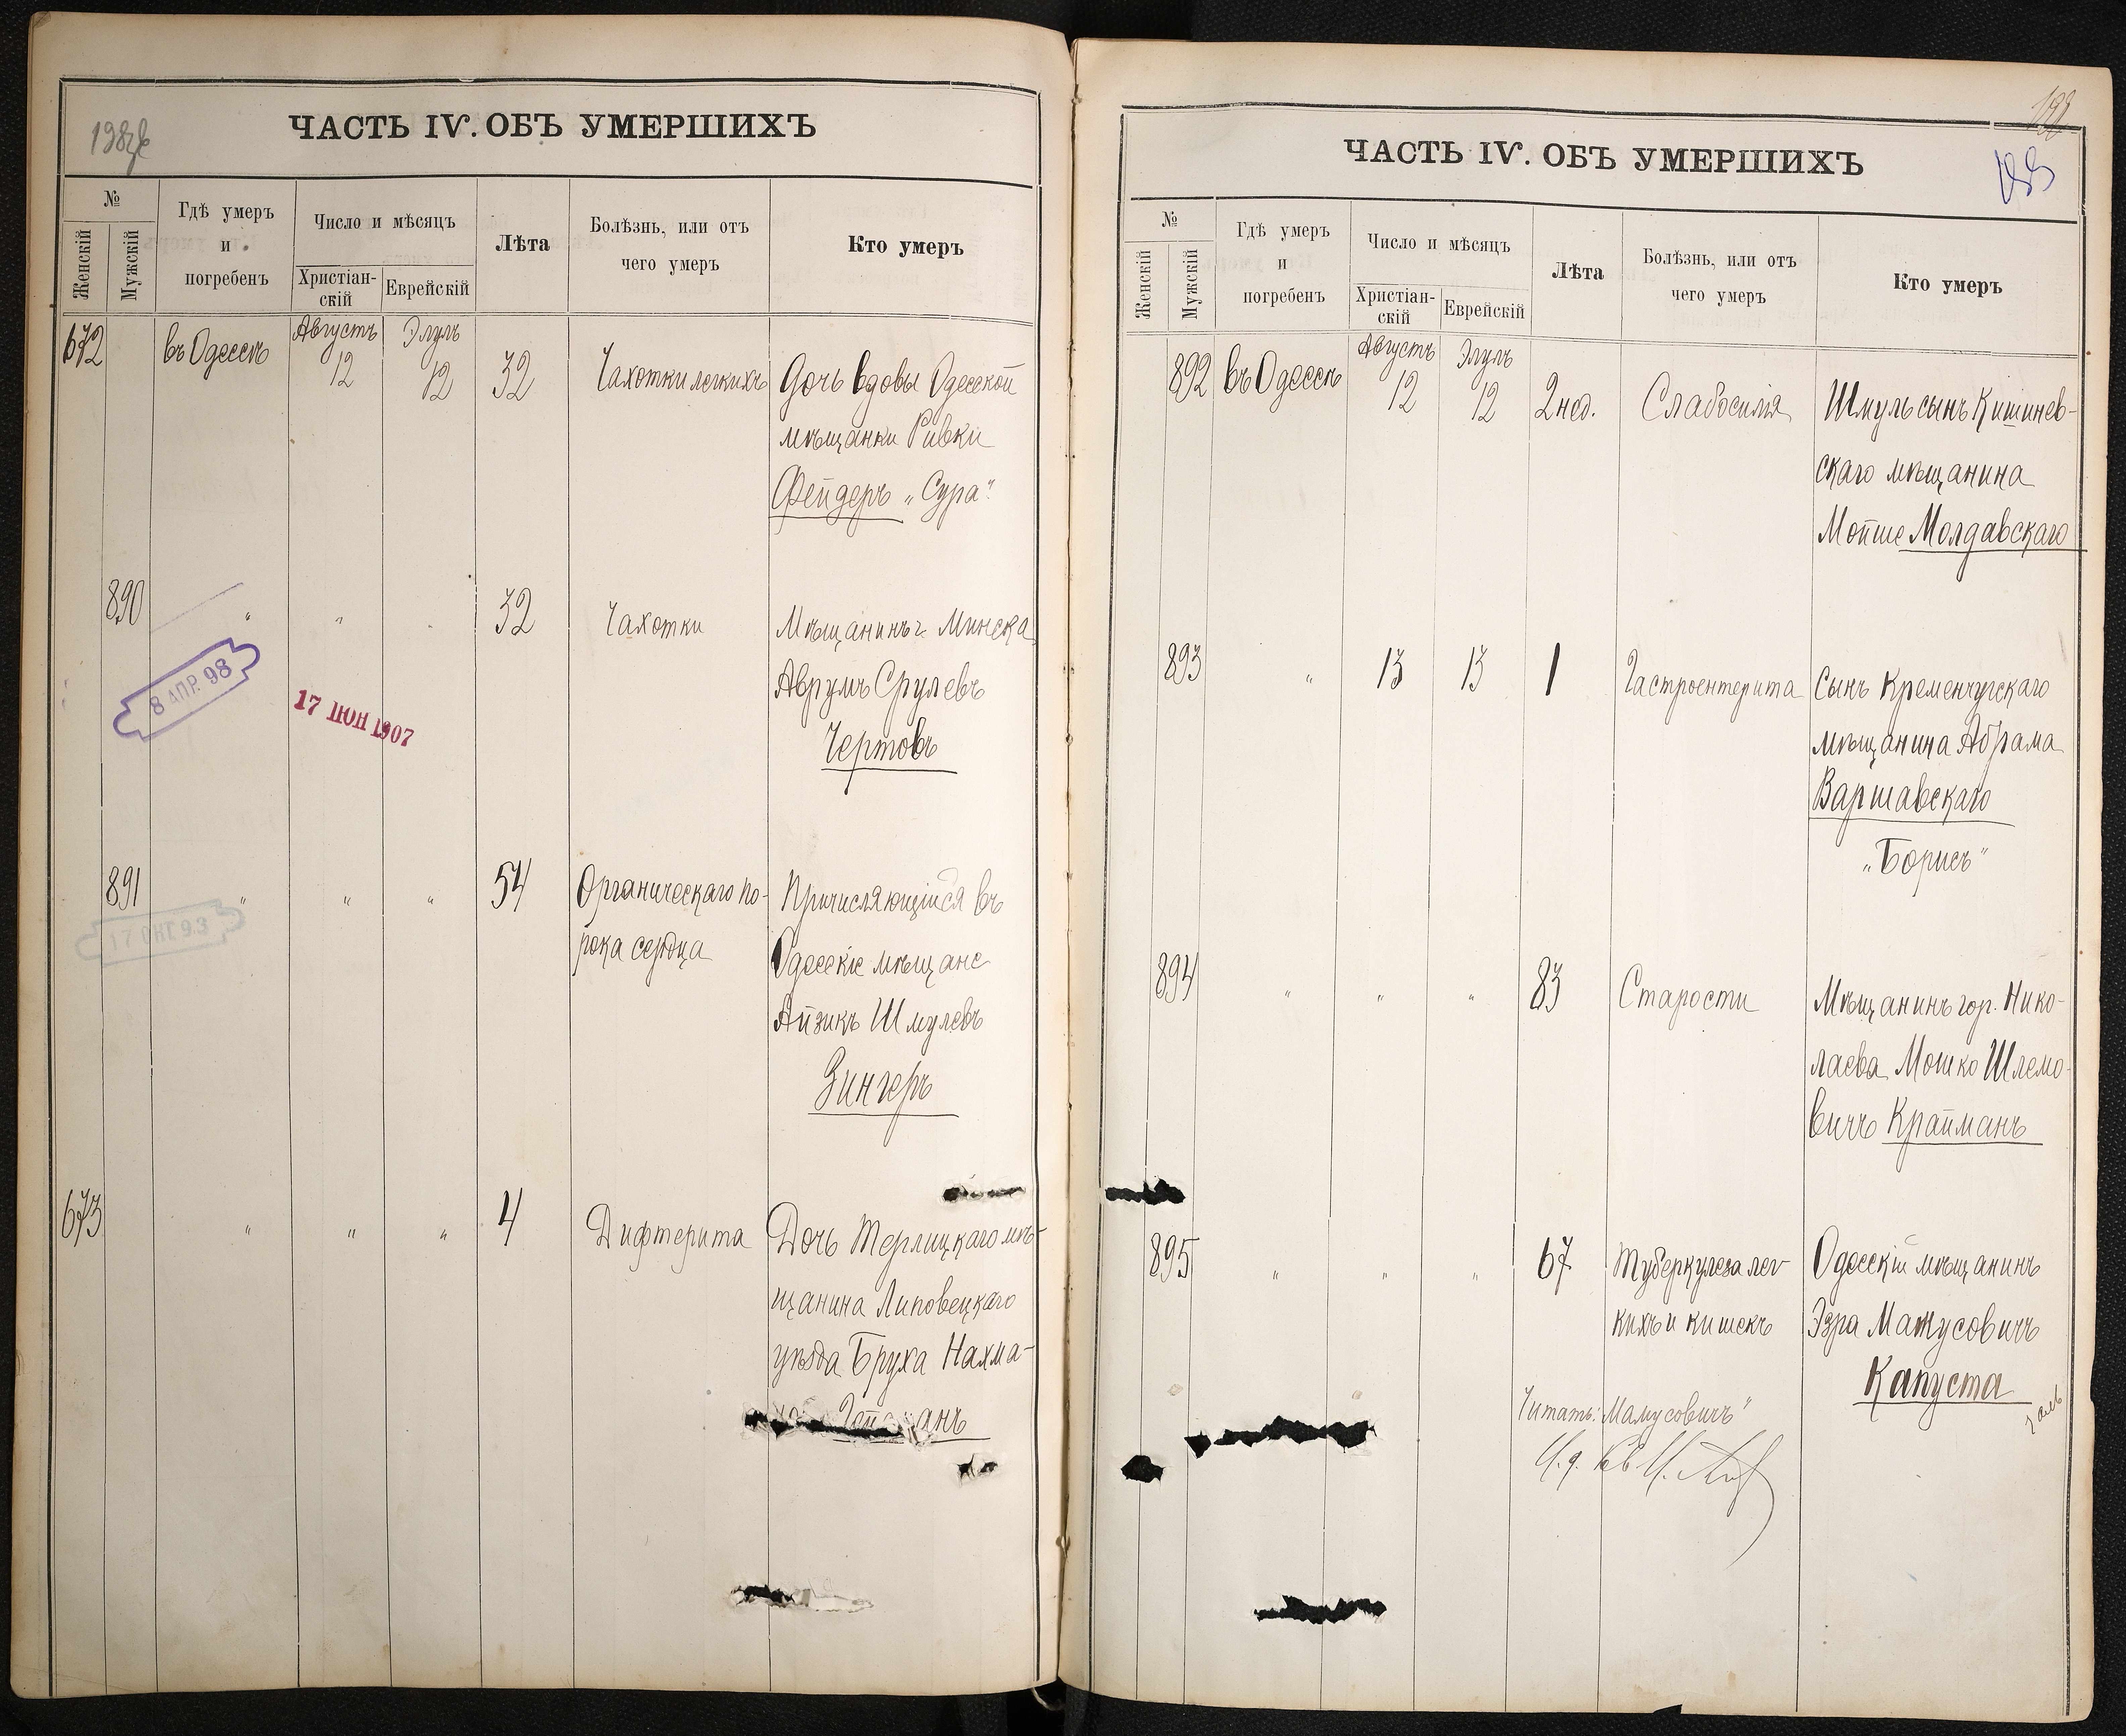 ЧАСТЬ IV. ОБЪ УМЕРШИХЪ
№
Женскій
Мужскій
Гдѣ умеръ
и
погребенъ
Число и мѣсяцъ
Христіан-
скій
Еврейскій
Лѣта
Болѣзнь, или отъ
чего умеръ
Кто умеръ
672 въ Одессѣ Августъ 12 Элулъ 12 32 Чахотки легкихъ Дочь вдовы Одесской
мѣщанки Ривки
Фейдеръ „Сура"
890 " " " 32 Чахотки Мѣщанинъ г. Минска
Аврумъ Срулевъ
Чертовъ
8 АПР. 98
17 ІЮН 1907
891 " " " 54 Органическаго по- Причисляющійся въ
рока сердца Одесскіе мѣщане
Айзикъ Шмулевъ
Зингеръ
17 ОКТ. 93
673 " " " 4 Дифтерита Дочь Терлицкаго мѣ-
щанина Липовецкаго
уѣзда Бруха Нахма-
анъ
ЧАСТЬ IV. ОБЪ УМЕРШИХЪ
№
Женскій
Мужскій
Гдѣ умеръ
и
погребенъ
Число и мѣсяцъ
Христіан-
скій
Еврейскій
Лѣта
Болѣзнь, или отъ
чего умеръ
Кто умеръ
892 въ Одессѣ Августъ 12 Элулъ 12 2 нед. Слабосилія Шмуль сынъ Кишинев-
скаго мѣщанина
Мойше Молдавскаго
893 " 13 13 1 Гастроентерита Сынъ Кременчугскаго
мѣщанина Абрама
Варшавскаго
„Борисъ"
894 " " " 83 Старости Мѣщанинъ гор. Нико-
лаева Мошко Шлемо-
вичъ Крайманъ
895 " " " 67 Туберкулеза лег- Одесскій мѣщанинъ
кихъ и кишекъ Эзра Мажусовичъ
Капуста
Читать: Мамусовичъ"
И. д.